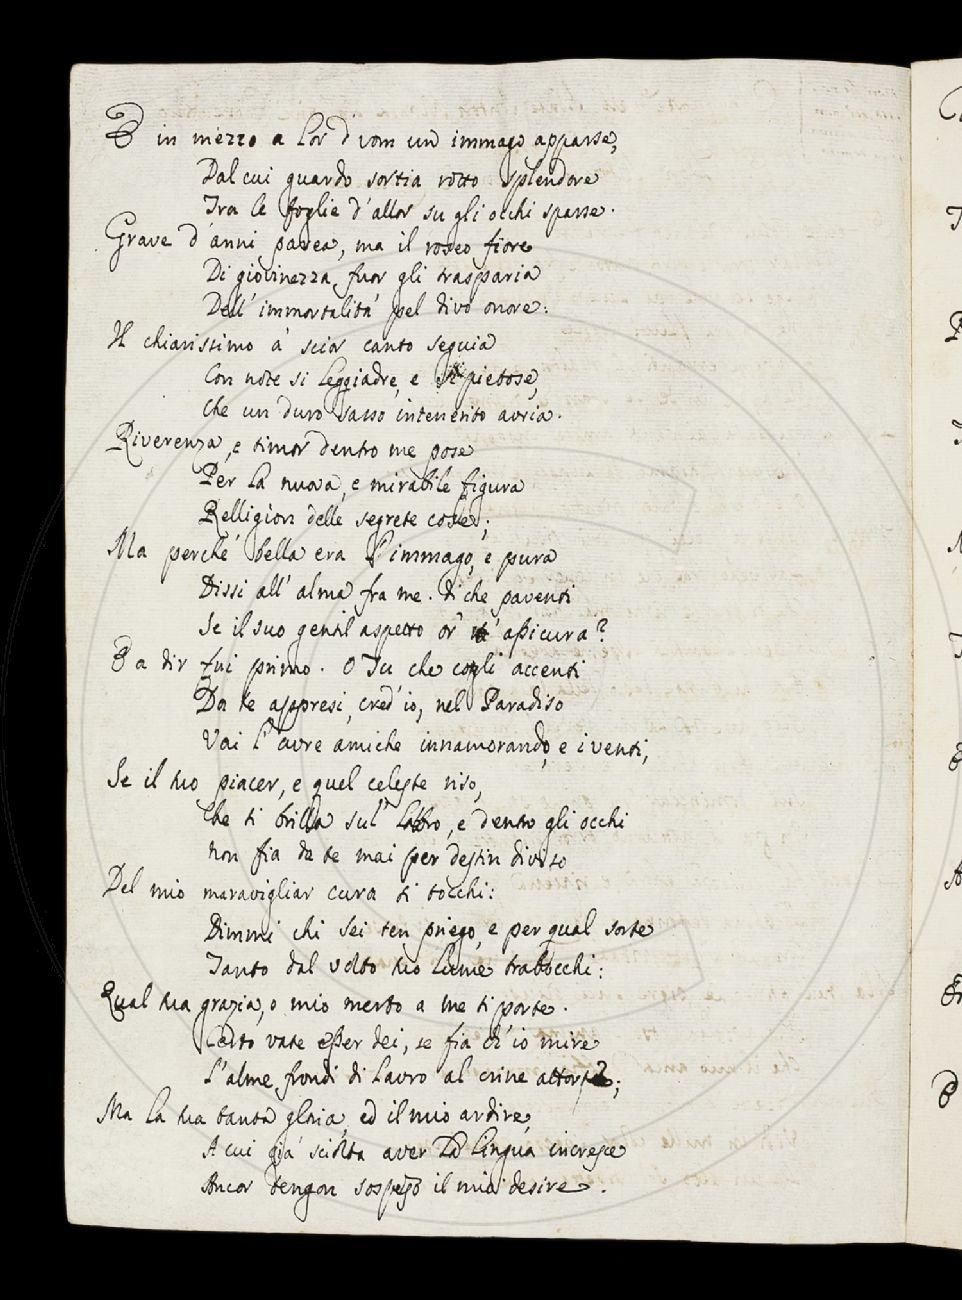 E in mezzo a lor d'uom un immago apparse,
Dal cui guardo sortia rotto splendore
Tra le foglie d'allor su gli occhi sparse.
Grave d'anni parea, ma il roseo fiore
Di giovinezza fuor gli trasparia
Dell' immortalità pel divo onore:
Il chiarissimo à scior canto seguia
Con note si leggiadre, e si pietose,
Che un duro sasso intenerito avria.
Riverenza, e timor dentro me pose
Per la nuova, e mirabile figura
Relligion delle segrete cose;
Ma perché bella era l'immago, e pura
Dissi all' alma fra me. di che paventi
Se il suo gentil aspetto or' t' assicura?
E a dir fui primo. O Tu che cogli accenti
Da te appresi, cred' io, nel Paradiso
Vai l'aure amiche innamorando, e i venti,
Se il tuo piacer, e quel celeste riso,
Che ti brilla sul labbro, e dentro gli occhi
Non fia da te mai per destin diviso
Del mio maravigliar cura ti tocchi:
Dimmi chi sei ten priego, e per qual sorte
Tanto dal volto tuo lume trabocchi:
Qual tua grazia, o mio merto a me ti porte.
Certo vate esser dei, se fia ch' io mire
L'alme frondi di Lauro al crine attorte;
Ma la tua tanta gloria, ed il mio ardire,
A cui già sciolta aver la lingua incresce
Ancor tengon sospeso il mio desire.